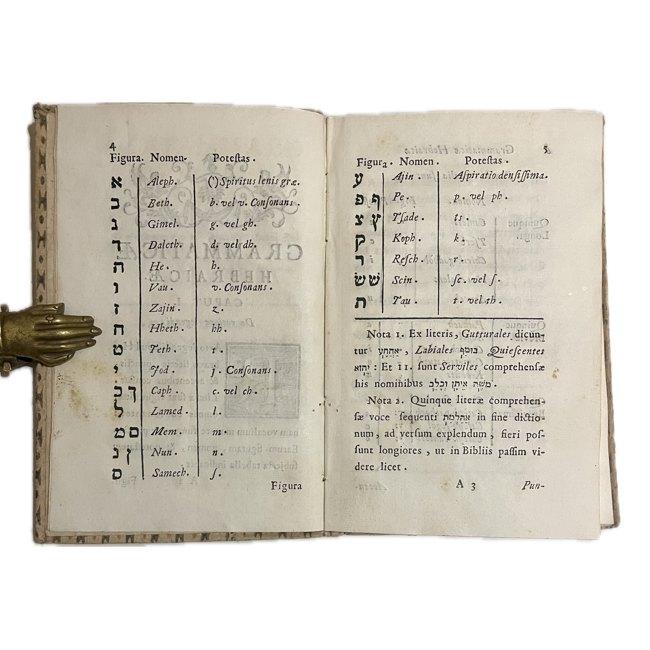 4
Figura. Nomen. Potestas.
א Aleph. (') Spiritus lenis græ.
ב Beth. b. vel v. Consonans.
ג Gimel. g. vel gh.
ד Daleth. d. vel dh.
ה He. h.
ו Vau. v. Consonans.
ז Zajin. z.
ח Hheth. hh.
ט Teth. t.
י Jod. j. Consonans.
כ ך Caph. c. vel ch.
ל Lamed. l.
מ ם Mem. m.
נ ן Nun. n.
ס Samech. ſ.
Figura
5
Figura. Nomen. Potestas.
ע Ajin. Aſpiratio denſiſſima.
פ ף Pe. p. vel ph.
צ ץ Tſade. ts.
ק Koph. k.
ר Reſch. r.
שׁשׂ Scin. ſc. vel ſ.
ת Tau. t. vel th.
Nota 1. Ex literis, Gutturales dicun-
tur Labiales Quieſcentes
: Et 11. ſunt Serviles comprehenſæ
his nominibus משה איתן וכלב.
Nota 2. Quinque literæ comprehen-
ſæ voce ſequenti in fine dictio-
num, ad verſum explendum, fieri poſ-
ſunt longiores, ut in Bibliis paſſim vi-
dere licet.
A 3 Pun-